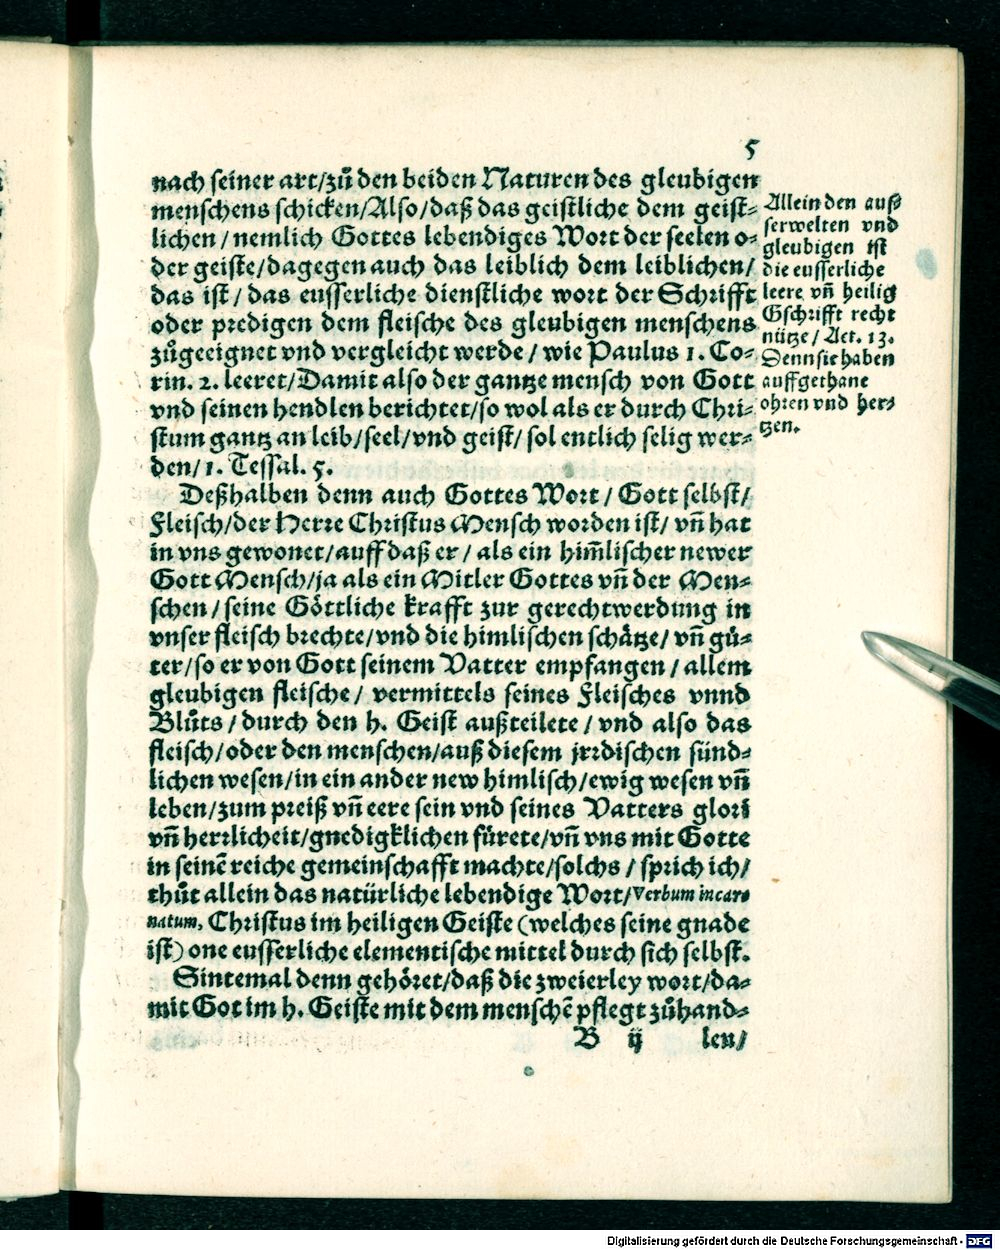 5
nach seiner art/zů den beiden Naturen des gleubigen
menschens schicken/Also/daß das geistliche dem geist-
lichen/nemlich Gottes lebendiges Wort der seelen o-
der geiste/dagegen auch das leiblich dem leiblichen/
das ist/das eusserliche dienstliche wort der Schrifft
oder predigen dem fleische des gleubigen menschens
zůgeeignet vnd vergleicht werde/wie Paulus 1. Co-
rin. 2. leeret/Damit also der gantze mensch von Gott
vnd seinen hendlen berichtet/so wol als er durch Chri-
stum gantz an leib/seel/vnd geist/sol entlich selig wer-
den/1. Tessal. 5.
Allein den auß
serwelten vnd
gleubigen ist
die eusserliche
leere vñ heilig
Gschrifft recht
nütze/Act. 13.
Denn sie haben
auffgethane
ohren vnd her-
tzen.
Deßhalben denn auch Gottes Wort/Gott selbst/
Fleisch/der Herre Christus Mensch worden ist/vñ hat
in vns gewonet/auff daß er/als ein him̃lischer newer
Gott Mensch/ja als ein Mitler Gottes vñ der Men-
schen/seine Göttliche krafft zur gerechtwerdung in
vnser fleisch brechte/vnd die himlischen schätze/vñ gů-
ter/so er von Gott seinem Vatter empfangen/allem
gleubigen fleische/vermittels seines Fleisches vnnd
Blůts/durch den h. Geist außteilete/vnd also das
fleisch/oder den menschen/auß diesem jrrdischen sünd-
lichen wesen/in ein ander new himlisch/ewig wesen vñ
leben/zum preiß vñ eere sein vnd seines Vatters glori
vñ herrlicheit/gnedigklichen fürete/vñ vns mit Gotte
in seinē reiche gemeinschafft machte/solchs/sprich ich/
thůt allein das natürliche lebendige Wort/Verbum incar-
natum, Christus im heiligen Geiste (welches seine gnade
ist) one eusserliche elementische mittel durch sich selbst.
Sintemal denn gehöret/daß die zweierley wort/da-
mit Got im h. Geiste mit dem menschē pflegt zůhand-
B ij len/
Digitalisierung gefördert durch die Deutsche Forschungsgemeinschaft - DFG